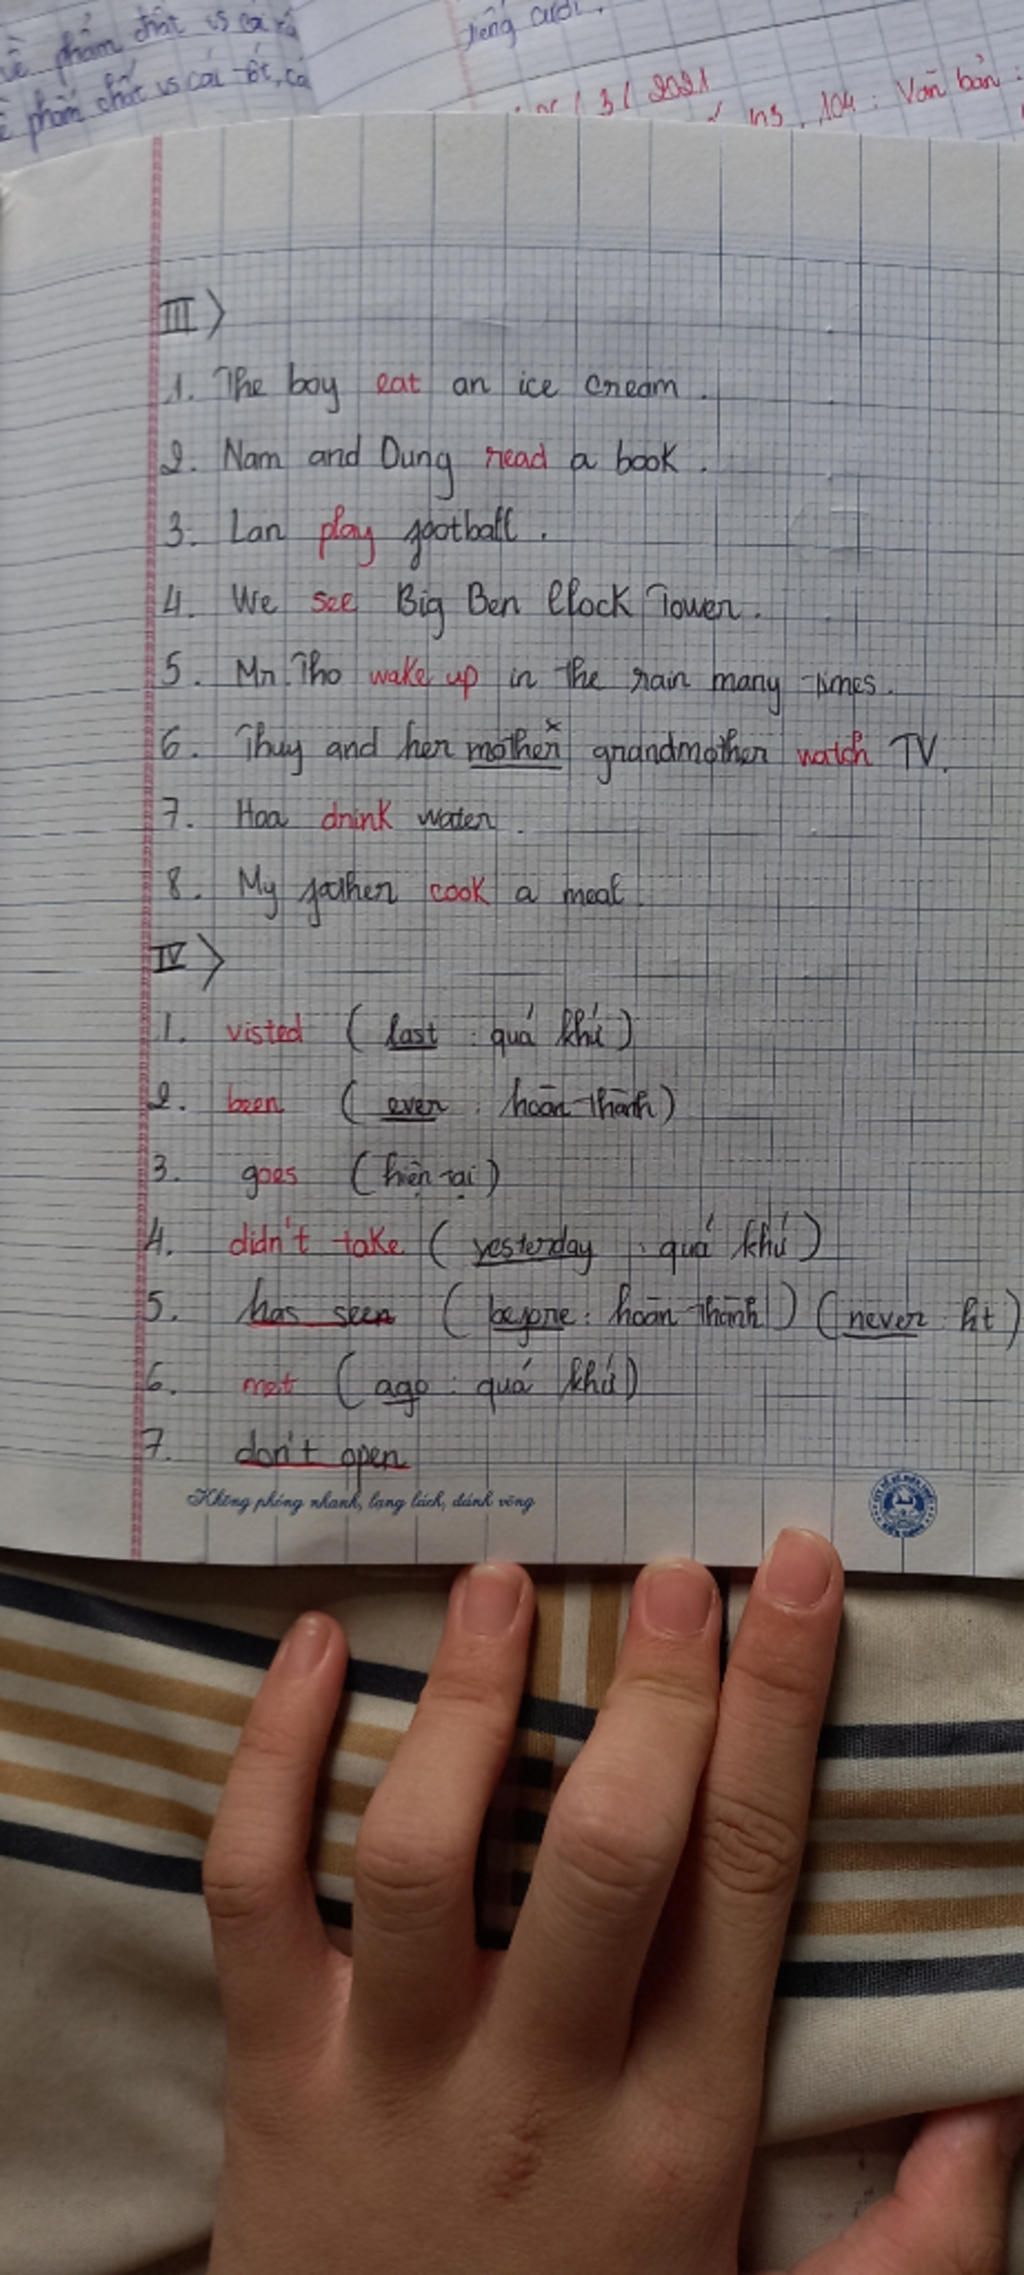 về phẩm chất vs cái xấ
phẩm chất vs cái tốt, cá
tiếng cười.
/ 3 / 2021
104 : Văn bản :
III>
1. The boy eat an ice cream.
2. Nam and Dung read a book.
3. Lan play football.
4. We see Big Ben Clock Tower.
5. Mr. Tho wake up in the rain many times.
6. Thuy and her mother grandmother watch TV.
7. Hoa drink water.
8. My father cook a meal.
IV>
1. visted ( last : quá khứ )
2. been ( ever : hoàn thành )
3. goes ( hiện tại )
4. didn't take ( yesterday : quá khứ )
5. has seen ( before : hoàn thành ) ( never : ht )
6. met ( ago : quá khứ )
7. don't open
Không phóng nhanh, lạng lách, đánh võng